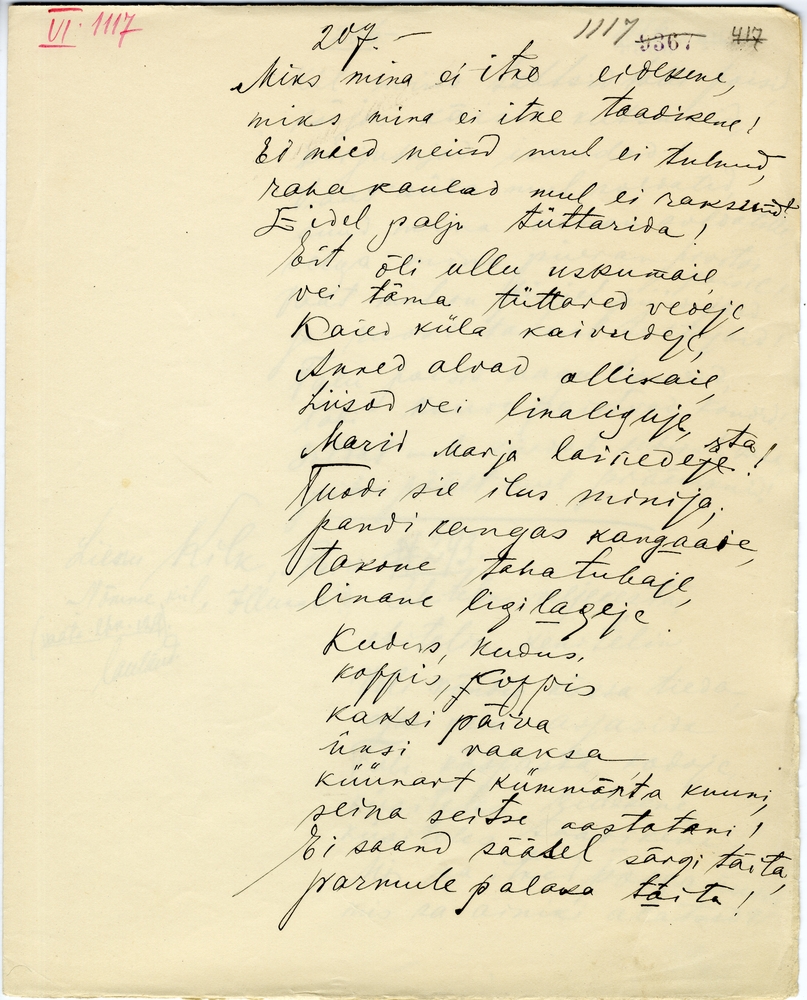 VI. 1117
1117 9367 417
207. –
Miks mina ei itke eidekene,
miks mina ei itke taadikene!
Ei näed neiud mul ei tulnud,
raha kaulad mul ei raksund!
Eidel palju tüttarida!
Eit õli ullu uskumaie,
vei täma tüttared vedeje,
Kaied küla kaivudeje,
Anned alvad allikaie,
Liisod vei linaliguje,
Marid marja lainedeje! sta
Tuodi sie ilus minija,
pandi kangas kangaaie,
takone taha tubaje,
linane ligilageje.
Kudus, kudus,
koppis, koppis
kaksi päiva
üksi vaaksa
küünart kümmänta kuuni,
seina seitse aastatani!
Ei saand säätel särgi täita,
parmule palaka täita!